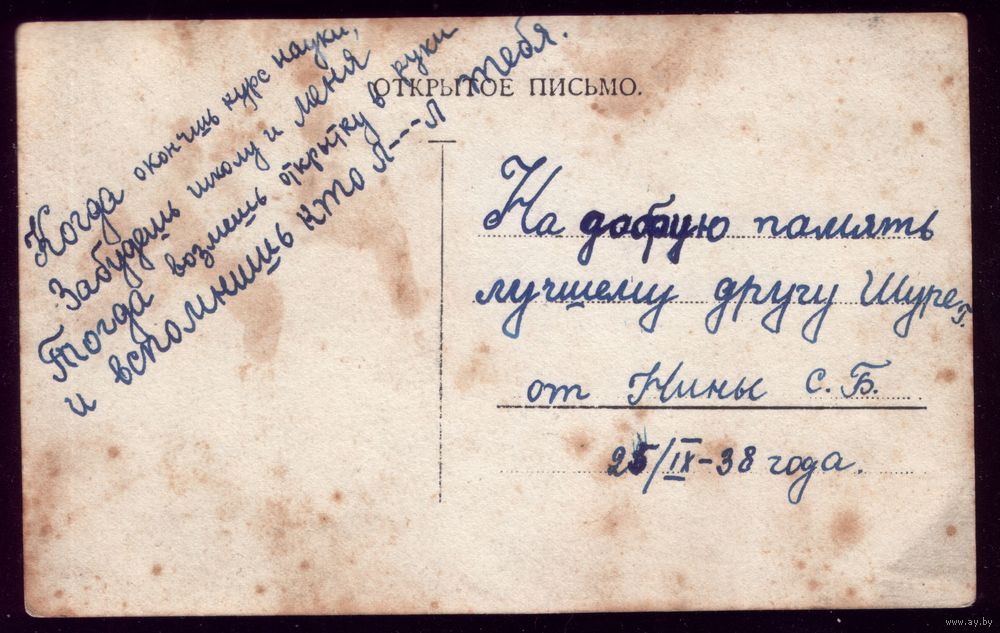 ОТКРЫТОЕ ПИСЬМО.
Когда окончишь курс науки,
Забудешь школу и меня
Тогда возмешь открытку в руки
и вспомнишь кто л---л тебя.
На добрую память
лучшему другу Шуре Г.
от Нины С.Б.
25/IX-38 года.
www.ay.by